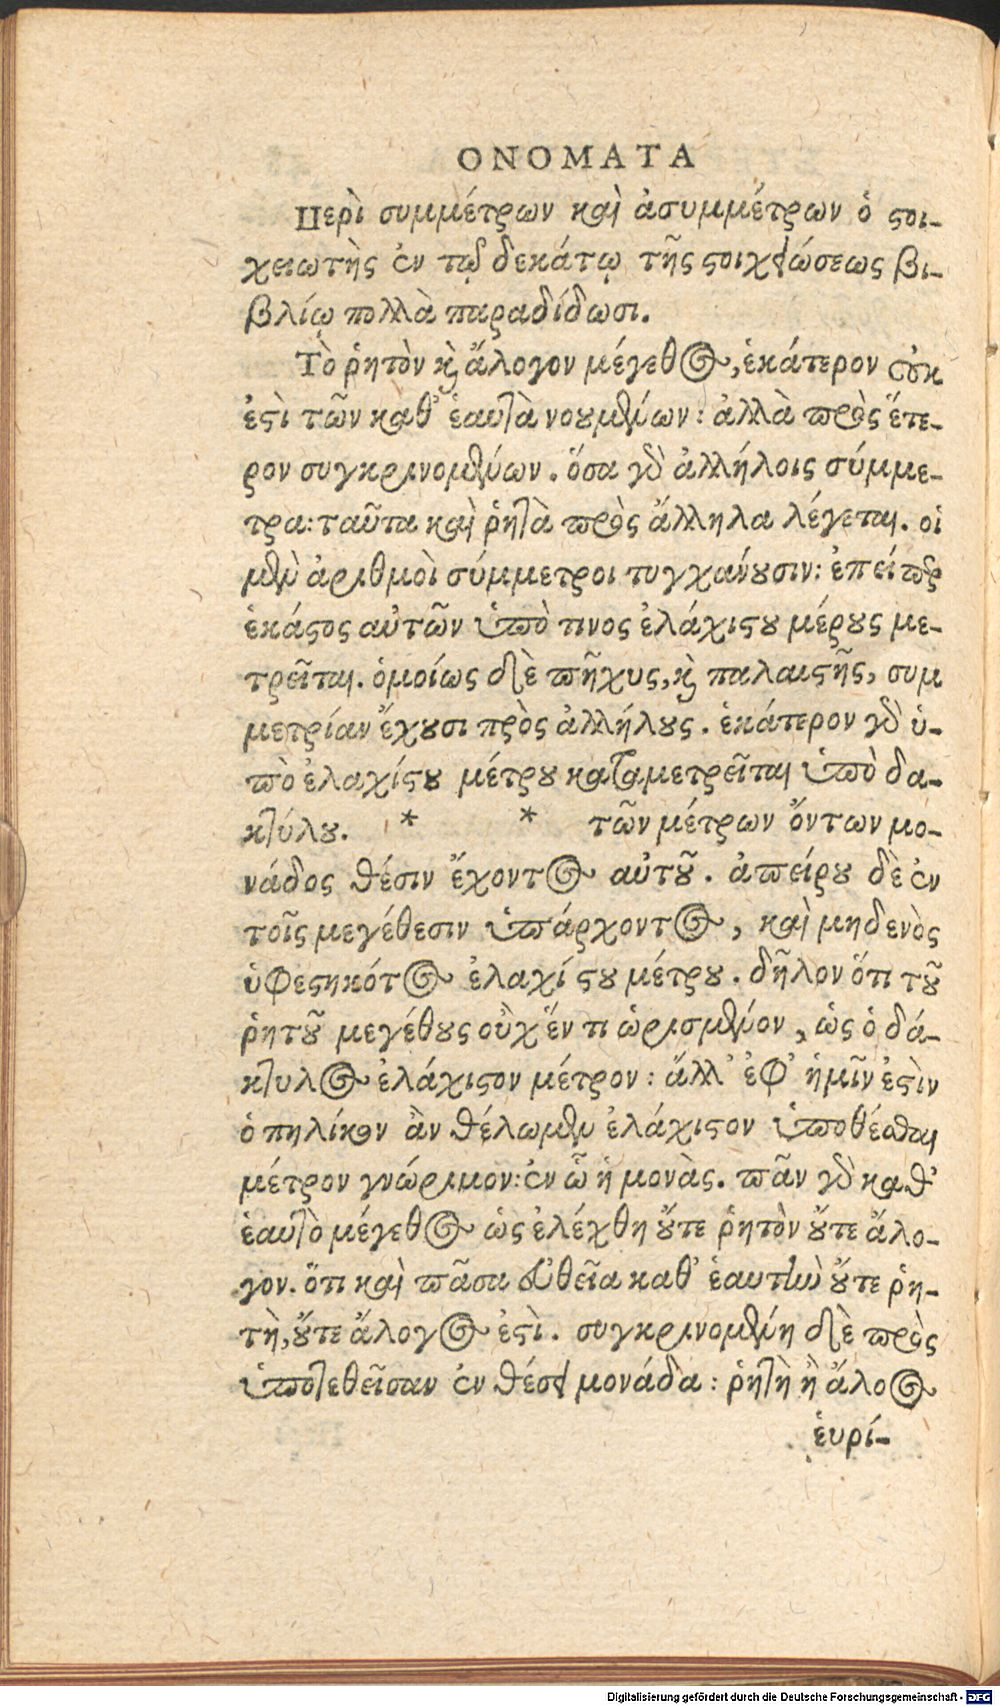 ΟΝΟΜΑΤΑ
Περὶ συμμέτρων καὶ ἀσυμμέτρων ὁ ϛοι-
χειωτὴς ἐν τῷ δεκάτῳ τῆς ϛοιχειώσεως βι-
βλίῳ πολλὰ παραδίδωσι.
Τὸ ῥητὸν κὶ ἄλογον μέγεθος, ἑκάτερον οὐκ
ἐϛὶ τῶν καθ' ἑαυτὰ νουμένων: ἀλλὰ πρὸς ἕτε-
ρον συγκρινομένων. ὅσα γὸ ἀλλήλοις σύμμε-
τρα: ταῦτα καὶ ῥητὰ πρὸς ἄλληλα λέγεται. οἱ
μὲν ἀριθμοὶ σύμμετροι τυγχανύουσιν: ἐπείπερ
ἑκάϛος αὐτῶν ὑπὸ τινος ἐλάχιϛου μέρους με-
τρεῖται. ὁμοίως δὲ πῆχυς, κὶ παλαιϛῆς, συμ
μετρίαν ἔχουσι πρὸς ἀλλήλους. ἑκάτερον γὸ ὑ-
πὸ ἐλαχίϛου μέτρου καταμετρεῖται ὑπὸ δα-
κτύλου. * * τῶν μέτρων ὄντων μο-
νάδος θέσιν ἔχοντος αὐτοῦ. ἀπείρου δὲ ἐν
τοῖς μεγέθεσιν ὑπάρχοντος, καὶ μηδενὸς
ὑφεϛηκότος ἐλαχίϛου μέτρου. δῆλον ὅτι τοῦ
ῥητοῦ μεγέθους οὐχ ἕν τι ὡρισμένον, ὡς ὁ δά-
κτυλος ἐλάχιϛον μέτρον: ἄλλ' ἐφ' ἡμῖν ἐϛὶν
ὁπηλίκον ἂν θέλωμεν ἐλάχιϛον ὑποθέσθαι
μέτρον γνώριμον: ἐν ὧ ἡ μονὰς. πᾶν γὸ καθ'
ἑαυτὸ μέγεθος ὡς ἐλέχθη οὔτε ῥητὸν οὔτε ἄλο-
γον. ὅτι καὶ πᾶσα εὐθεῖα καθ' ἑαυτὴν οὔτε ῥη-
τὴ, οὔτε ἄλογος ἐϛὶ. συγκρινομένη δὲ πρὸς
ὑποτεθεῖσαν ἐν θέσει μονάδα: ῥητὴ ἢ ἄλος
ἑυρί-
Digitalisierung gefördert durch die Deutsche Forschungsgemeinschaft - DFG